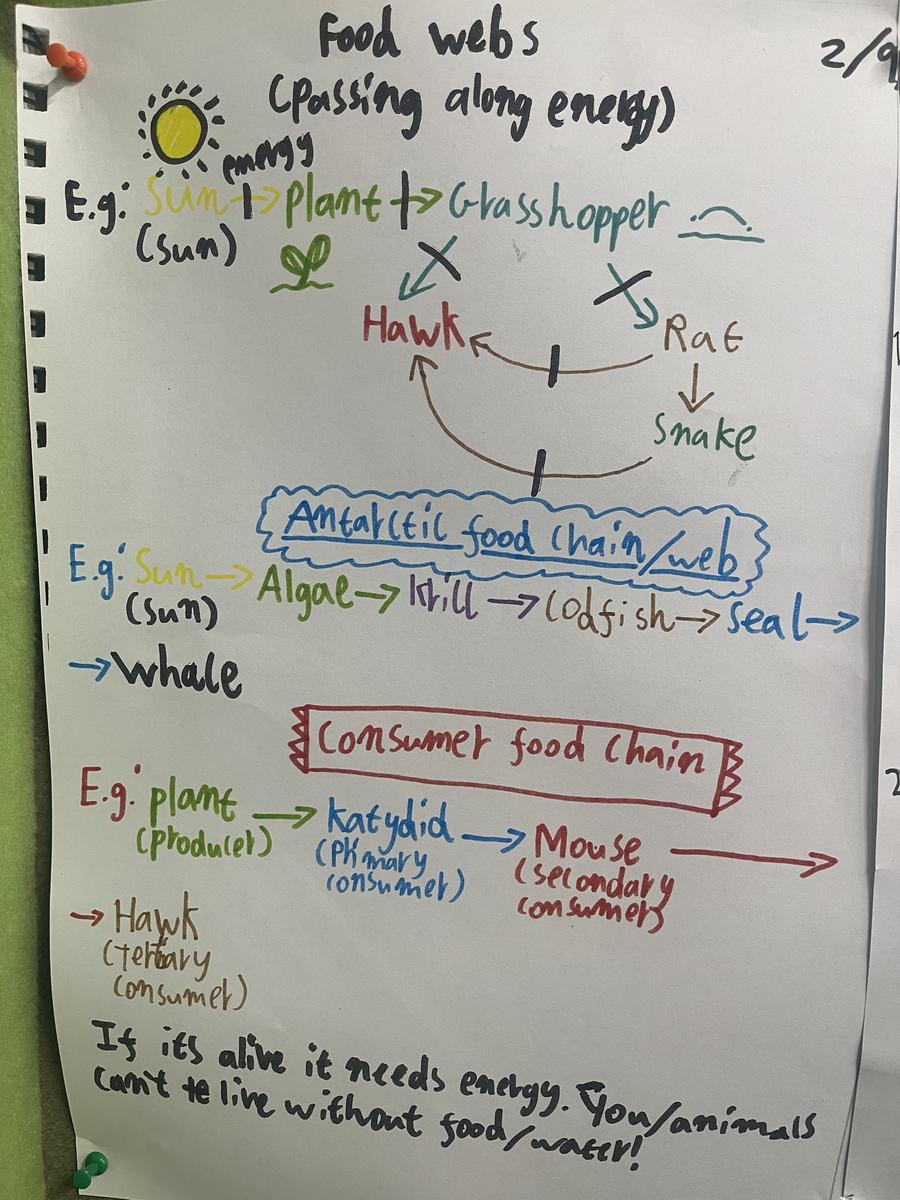 Food webs
2/9
(passing along energy)
energy
E.g: Sun → Plant → Grasshopper
(sun)
Hawk
Rat
Snake
Antarctic food chain/web
E.g: Sun → Algae → Krill → Codfish → Seal →
(sun)
→ Whale
Consumer food chain
E.g: plant → Katydid → Mouse →
(producer)
(Primary
consumer)
(secondary
consumer)
→ Hawk
(tertiary
consumer)
If its alive it needs energy. You/animals
can't live without food/water!